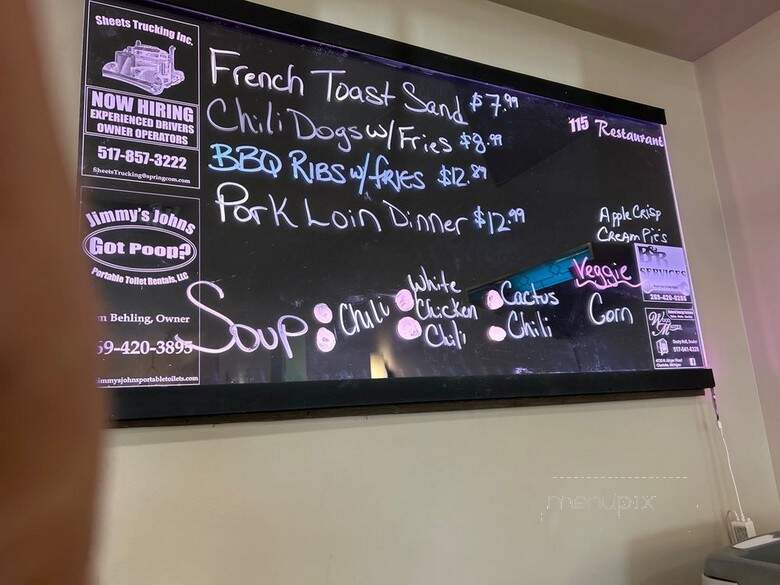 Sheets Trucking Inc.
NOW HIRING
EXPERIENCED DRIVERS
OWNER OPERATORS
517-857-3222
SheetsTrucking@springcom.com
Jimmy's Johns
Got Poop?
Portable Toilet Rentals, LLC
m Behling, Owner
59-420-3895
immysjohnsportabletoilets.com
French Toast Sand $7.99
Chili Dogs w/ Fries $8.99
BBQ RIBS w/ fries $12.89
Pork Loin Dinner $12.99
Soup: Chili
White
Chicken
Chili
Cactus
Chili
115 Restaurant
Apple Crisp
Cream Pies
Veggie
Corn
SERVICES
menupix